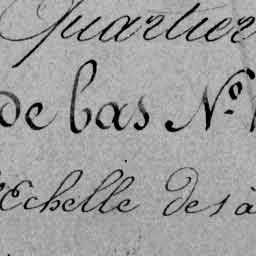 Quartier
de bas N.º
l'Echelle des à